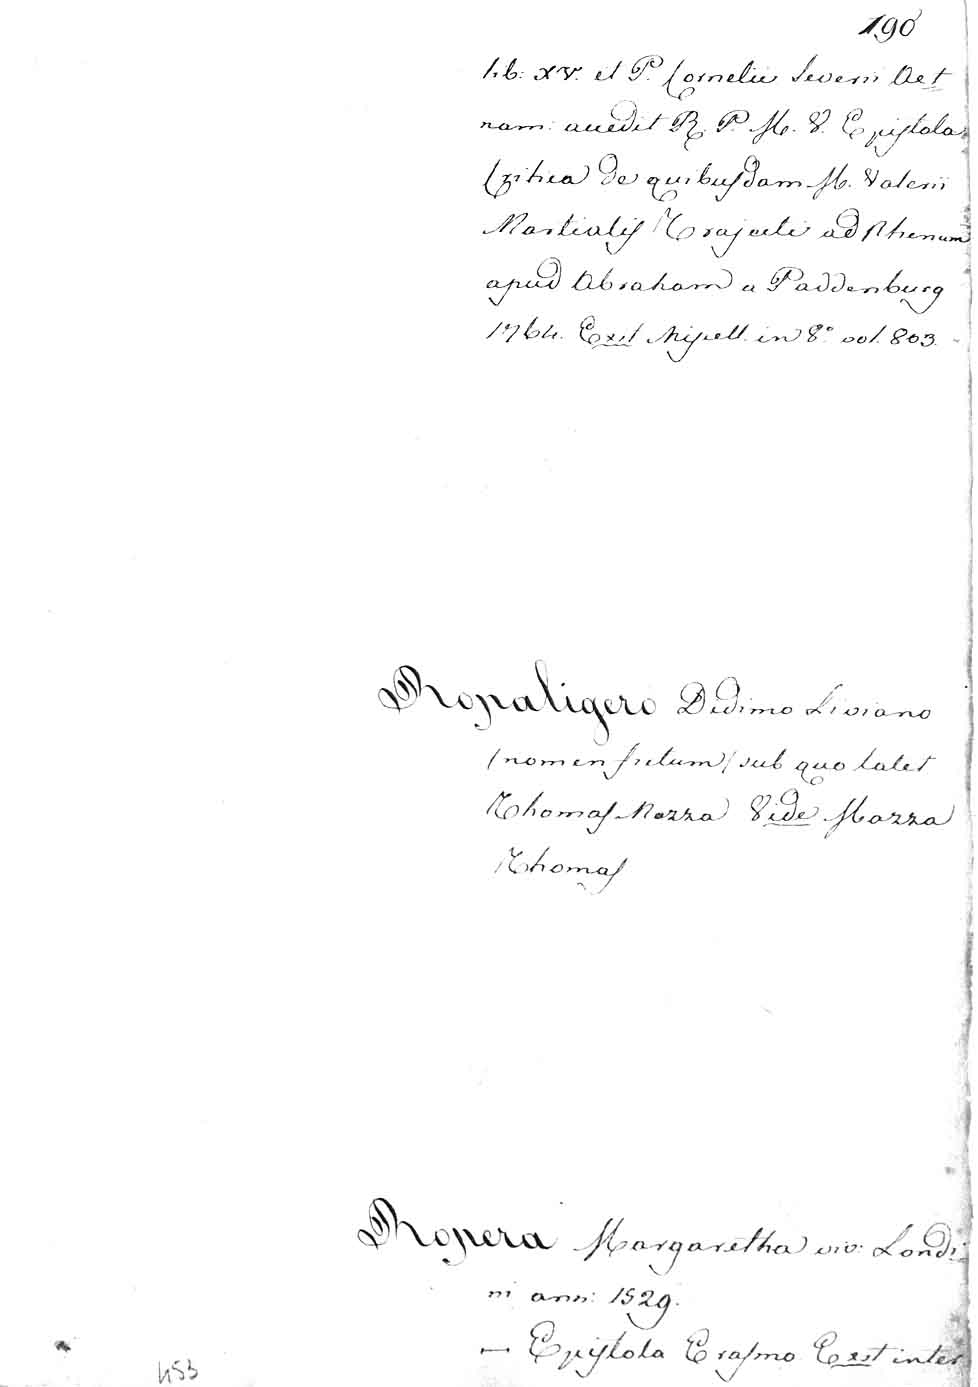 190
lib: XV. et P. Cornelii Severi Aet
nam: accedit R. P. M. V. Epistola
Critica de quibusdam M. Valerii
Martialis Trajecti ad Rhenum
apud Abraham a Paddenburg
1764. Exst Miscell. in 8º vol. 803.
Ropaligero Didimo Liviano
(nomen fictum) sub quo latet
Thomas Mazza Vide Mazza
Thomas
Ropera Margaretha viv: Londi
ni ann: 1529.
— Epistola Erasmo Exst inter
453